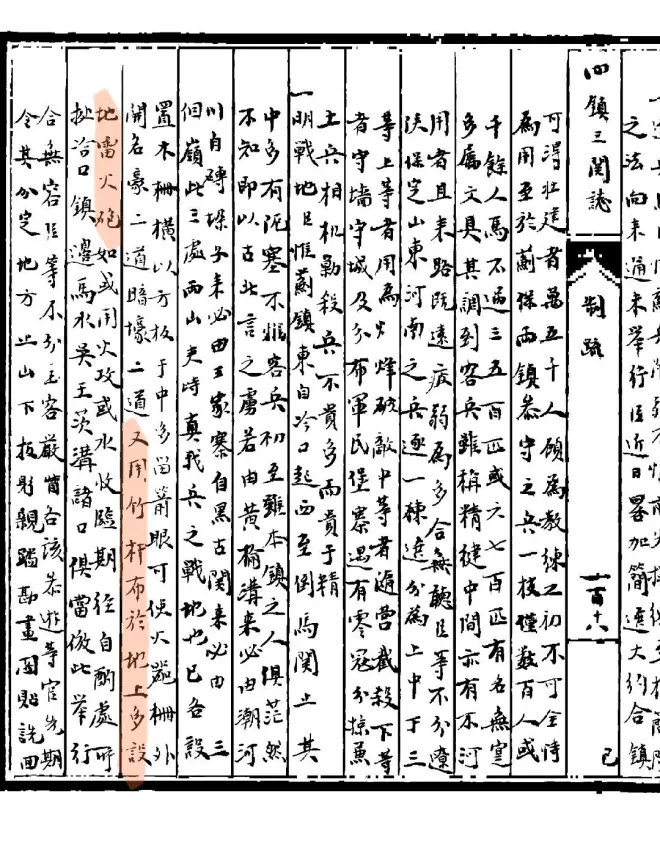 之法向來通未舉行臣近日畧加簡選大約合鎮
四鎮三關誌
制疏
一百十八
己
可得壯健者萬五千人願為教練之初不可全恃
為用至於薊保兩鎮泰守之兵一枝僅數百人或
千餘人馬不過三五百匹或六七百匹有名無實
多屬文具其調到客兵雖稱精健中間亦有不
用者且來路既遠疲弱為多合無聽臣等不分遼
保定山東河南之兵逐一棟選分為上中下三
等上等者用為火烽破敵中等者遍營截殺下等
者守墻守城及分布軍民堡寨遇有零寇分掠
土兵相机勦殺兵不貴多而貴于精
一明戰地臣惟薊鎮東自冷口起西至倒馬關止其
中多有阨塞不惟客兵初至雖本鎮之人俱茫然
不知即以古北言之虜若由黃榆溝來必由潮河
川自磚垜子來必由王家寨自黑古關來必由三
個嶺此三處兩山夾峙真我兵之戰地也已各設
置木柵橫以方板于中多留箭眼可使火器柵外
開名濠二道暗壕二道又用竹杆布於地上多設
地雷火砲如或用火攻或水攻臨期徑自酌處所
扯冶口鎮邊馬水吳王茨溝諸口俱當倣此舉行
合無容臣等不分主客嚴督各該泰遊等官先期
令其分定地方上山下板身親踏勘畫圖貼說回